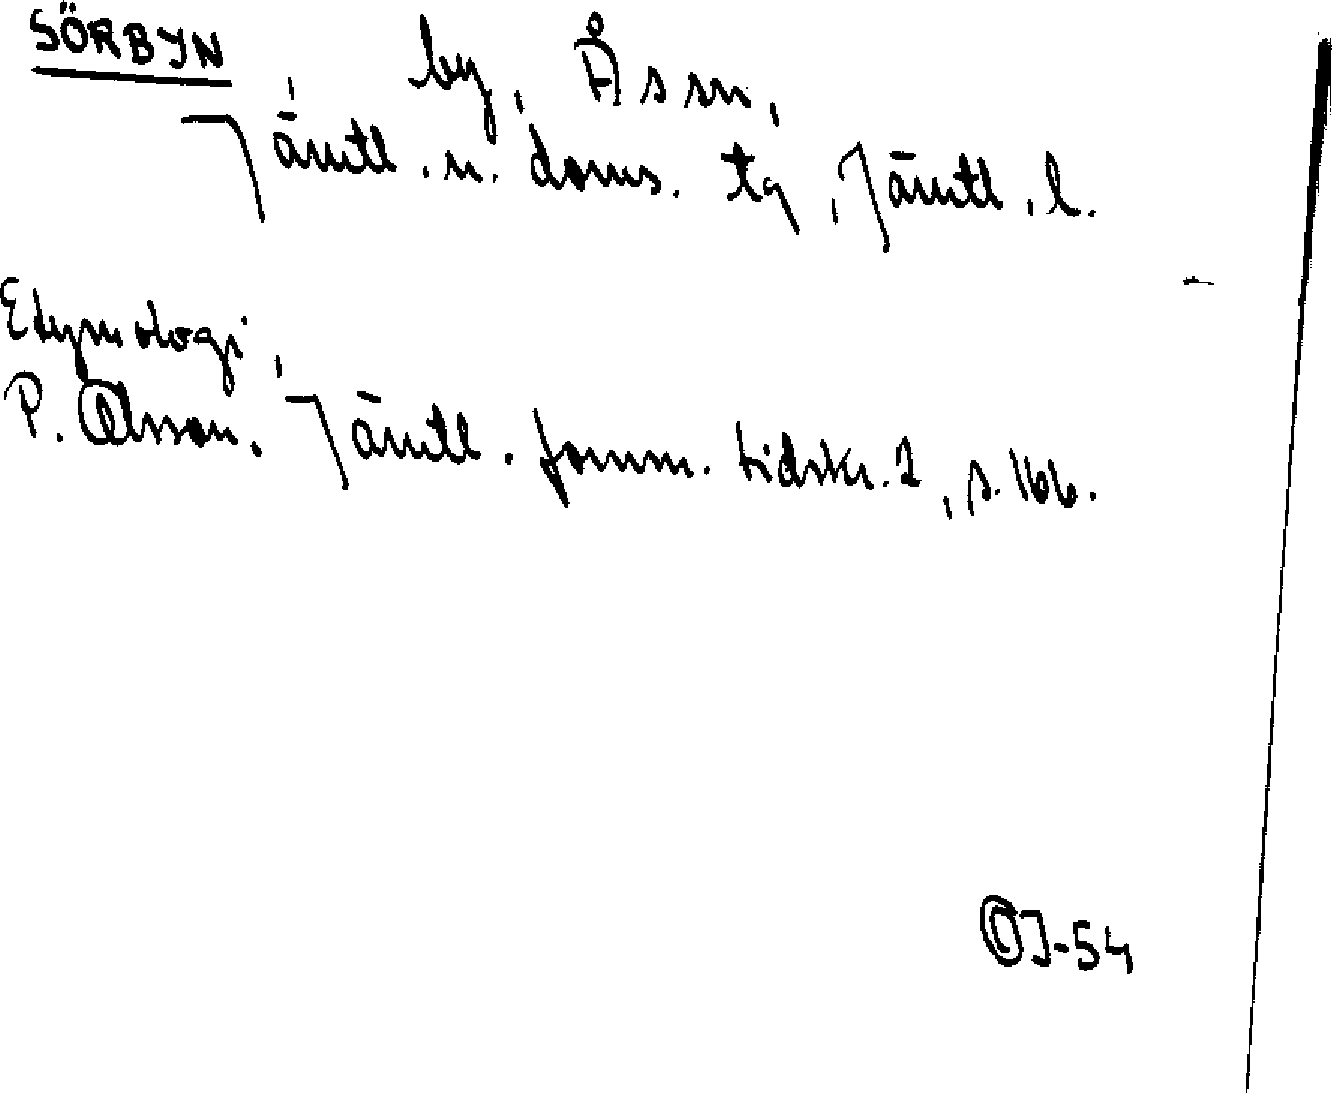 SÖRBYN, by, Ås sn,
Jämtl. n. doms. tg, Jämtl. l.
Etymologi,
P. Olsson. Jämtl. fornm. tidskr. 2, s. 166.
OJ-54